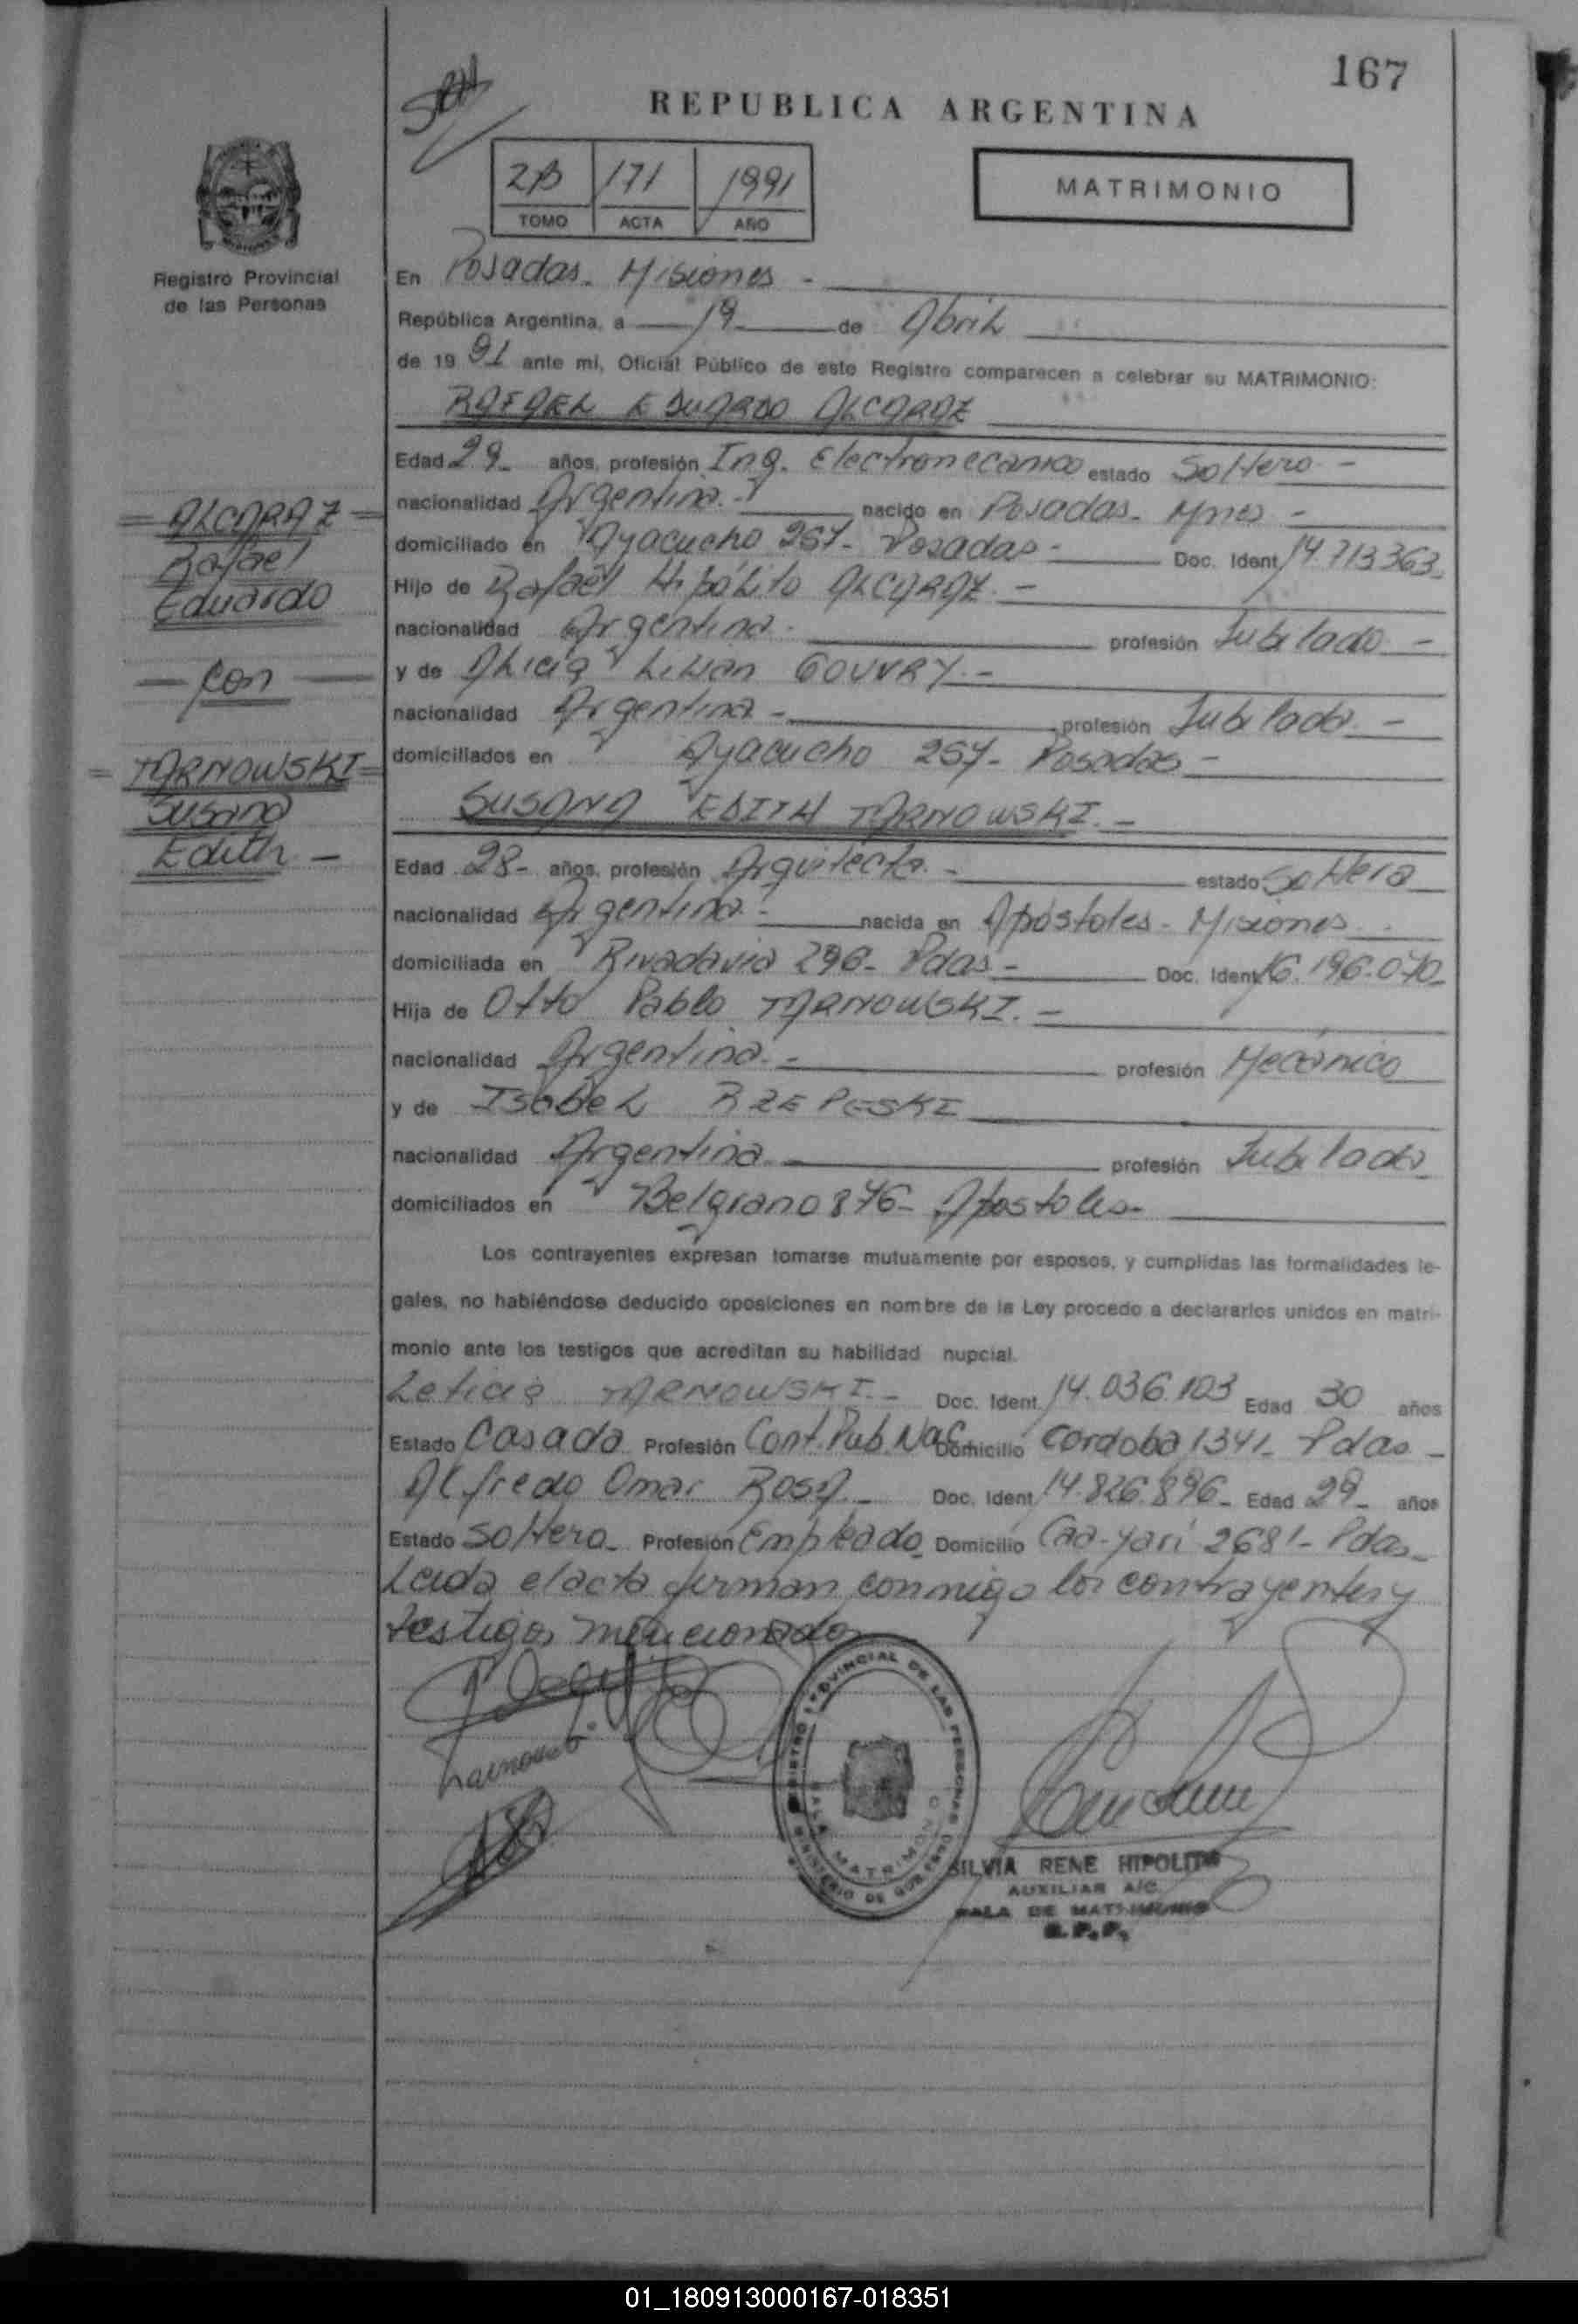 167
REPUBLICA ARGENTINA
2B 171 1991
TOMO ACTA AÑO
MATRIMONIO
Registro Provincial
de las Personas
En Posadas - Misiones -
República Argentina, a 19 de Abril
de 1991 ante mi, Oficial Público de este Registro comparecen a celebrar su MATRIMONIO:
RAFAEL EDUARDO ALCARAZ
Edad 29 - años, profesión Ing. Electromecanico estado Soltero -
nacionalidad Argentina - nacido en Posadas - Mnes -
domiciliado en Ayacucho 257 - Posadas - Doc. Ident. 14.713.363 -
Hijo de Rafael Hipólito ALCARAZ. -
nacionalidad Argentina - profesión Jubilado -
y de Alicia Lilian GOUVRY. -
nacionalidad Argentina - profesión Jubilada. -
domiciliados en Ayacucho 257 - Posadas -
= ALCARAZ =
Rafael
Eduardo
— con —
= TARNOWSKI =
Susana
Edith -
SUSANA EDITH TARNOWSKI. -
Edad 28 - años, profesión Arquitecta. - estado Soltera
nacionalidad Argentina - nacida en Apóstoles - Misiones
domiciliada en Rivadavia 296 - Pdas - Doc. Ident. 16.196.070 -
Hija de Otto Pablo TARNOWSKI. -
nacionalidad Argentina. - profesión Mecánico
y de Isabel RZEPESKI
nacionalidad Argentina - profesión Jubilada
domiciliados en Belgrano 876 - Apostoles -
Los contrayentes expresan tomarse mutuamente por esposos, y cumplidas las formalidades le-
gales, no habiéndose deducido oposiciones en nombre de la Ley procedo a declararlos unidos en matri-
monio ante los testigos que acreditan su habilidad nupcial.
Leticia TARNOWSKI. - Doc. Ident. 14.036.103 Edad 30 años
Estado Casada Profesión Cont. Pub. Nac. Domicilio Cordoba 1341 - Pdas -
Alfredo Omar ROSA - Doc. Ident. 14.826.896 - Edad 29 - años
Estado Soltero - Profesión Empleado Domicilio Caa-Yari 2681 - Pdas -
Leida el acta firman conmigo los contrayentes y
testigos mencionados
REGISTRO PROVINCIAL DE LAS PERSONAS
MINISTERIO DE GOBIERNO
SALA MATRIMONIO
SILVIA RENE HIPOLITO
AUXILIAR A/C.
SALA DE MATRIMONIO
R.P.P.
01_180913000167-018351